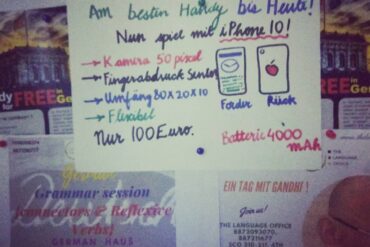 Am besten Handy bis Heute!
Nun spiel mit iPhone 10!
→ Kamera 50 pixel
→ Fingerabdruck Sensor
→ Umfäng 80x20x10
→ Flexibel
Forder Rück
Nur 100 Euro.
Batterie 4000 mAh
FREE in
FREE in
Grammar session
(connectors & Reflexive
Verbs)
GERMAN HAUS
EIN TAG MIT GANDHI!
Join us!
THE LANGUAGE OFFICE